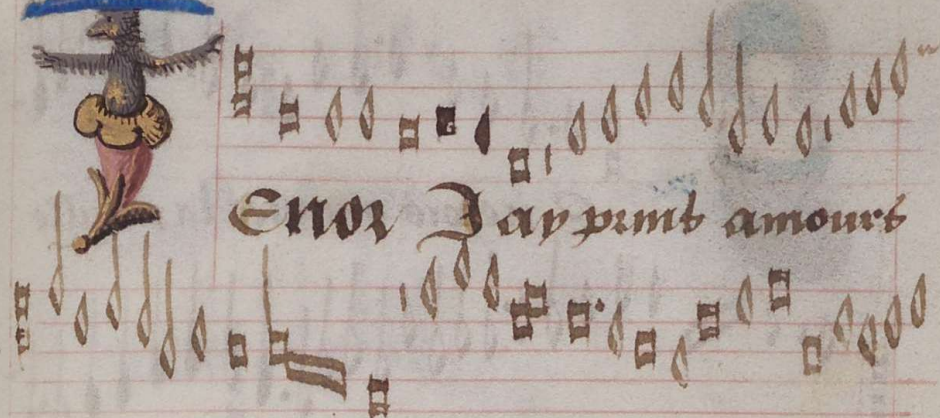 Enor Jay prins amours